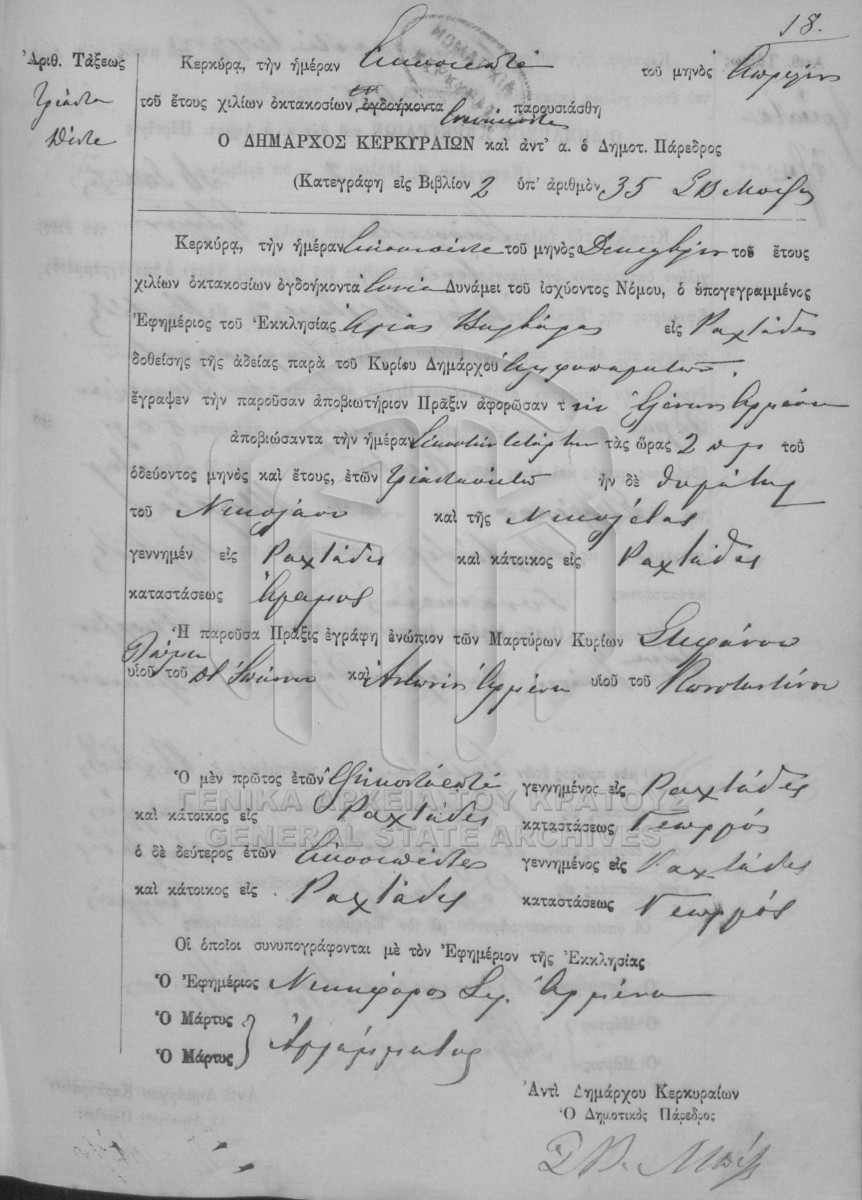 18.
Ἀριθ. Τάξεως
Τριάντα
πέντε
Κερκύρᾳ, τὴν ἡμέραν Εἰκοσιεπτὰ τοῦ μηνὸς Ἀπριλίου
τοῦ ἔτους χιλίων ὀκτακοσίων ὀγδοήκοντα ἐνενήκοντα παρουσιάσθη
Ο ΔΗΜΑΡΧΟΣ ΚΕΡΚΥΡΑΙΩΝ καὶ ἀντ' α. ὁ Δημοτ. Πάρεδρος
(Κατεγράφη εἰς Βιβλίον 2 ὑπ' ἀριθμὸν 35
Κερκύρᾳ, τὴν ἡμέραν Εἰκοσιπέντε τοῦ μηνὸς Δεκεμβρίου τοῦ ἔτους
χιλίων ὀκτακοσίων ὀγδοήκοντα ἐννέα Δυνάμει τοῦ ἰσχύοντος Νόμου, ὁ ὑπογεγραμμένος
Ἐφημέριος τοῦ Ἐκκλησίας Ἁγίας Βαρβάρας εἰς Ραχτάδες
δοθείσης τῆς ἀδείας παρὰ τοῦ Κυρίου Δημάρχου
ἔγραψεν τὴν παροῦσαν ἀποβιωτήριον Πρᾶξιν ἀφορῶσαν τ ὴν Ἑλένην Ἀρμένη
ἀποβιώσαντα τὴν ἡμέραν Εἰκοστὴν τετάρτην τὰς ὥρας 2 π μ τοῦ
ὁδεύοντος μηνὸς καὶ ἔτους, ἐτῶν τριανταοκτὼ ἦν δὲ θυγάτηρ
τοῦ Νικολάου καὶ τῆς Νικολέτας
γεννημέν εἰς Ραχτάδες καὶ κάτοικος εἰς Ραχτάδες
καταστάσεως Ἄγαμος
Ἡ παροῦσα Πρᾶξις ἐγράφη ἐνώπιον τῶν Μαρτύρων Κυρίων Στεφάνου
υἱοῦ τοῦ Ἰωάννου καὶ Ἀντωνίου Ἀρμένη υἱοῦ τοῦ Κωνσταντίνου
Ὁ μὲν πρῶτος ἐτῶν γεννημένος εἰς Ραχτάδες
καὶ κάτοικος εἰς Ραχτάδες καταστάσεως Γεωργός
ὁ δὲ δεύτερος ἐτῶν Εἰκοσιπέντε γεννημένος εἰς Ραχτάδες
καὶ κάτοικος εἰς Ραχτάδες καταστάσεως Γεωργός
Οἱ ὁποῖοι συνυπογράφονται μὲ τὸν Ἐφημέριον τῆς Ἐκκλησίας
Ὁ Ἐφημέριος Νικηφόρος Ἀρμένη
Ὁ Μάρτυς
Ὁ Μάρτυς Ἀγράμματος
Ἀντὶ Δημάρχου Κερκυραίων
Ὁ Δημοτικὸς Πάρεδρος
ΝΟΜΑΡΧΙΑ ΚΕΡΚΥΡΑΣ
ΓΕΝΙΚΑ ΑΡΧΕΙΑ ΤΟΥ ΚΡΑΤΟΥΣ
GENERAL STATE ARCHIVES